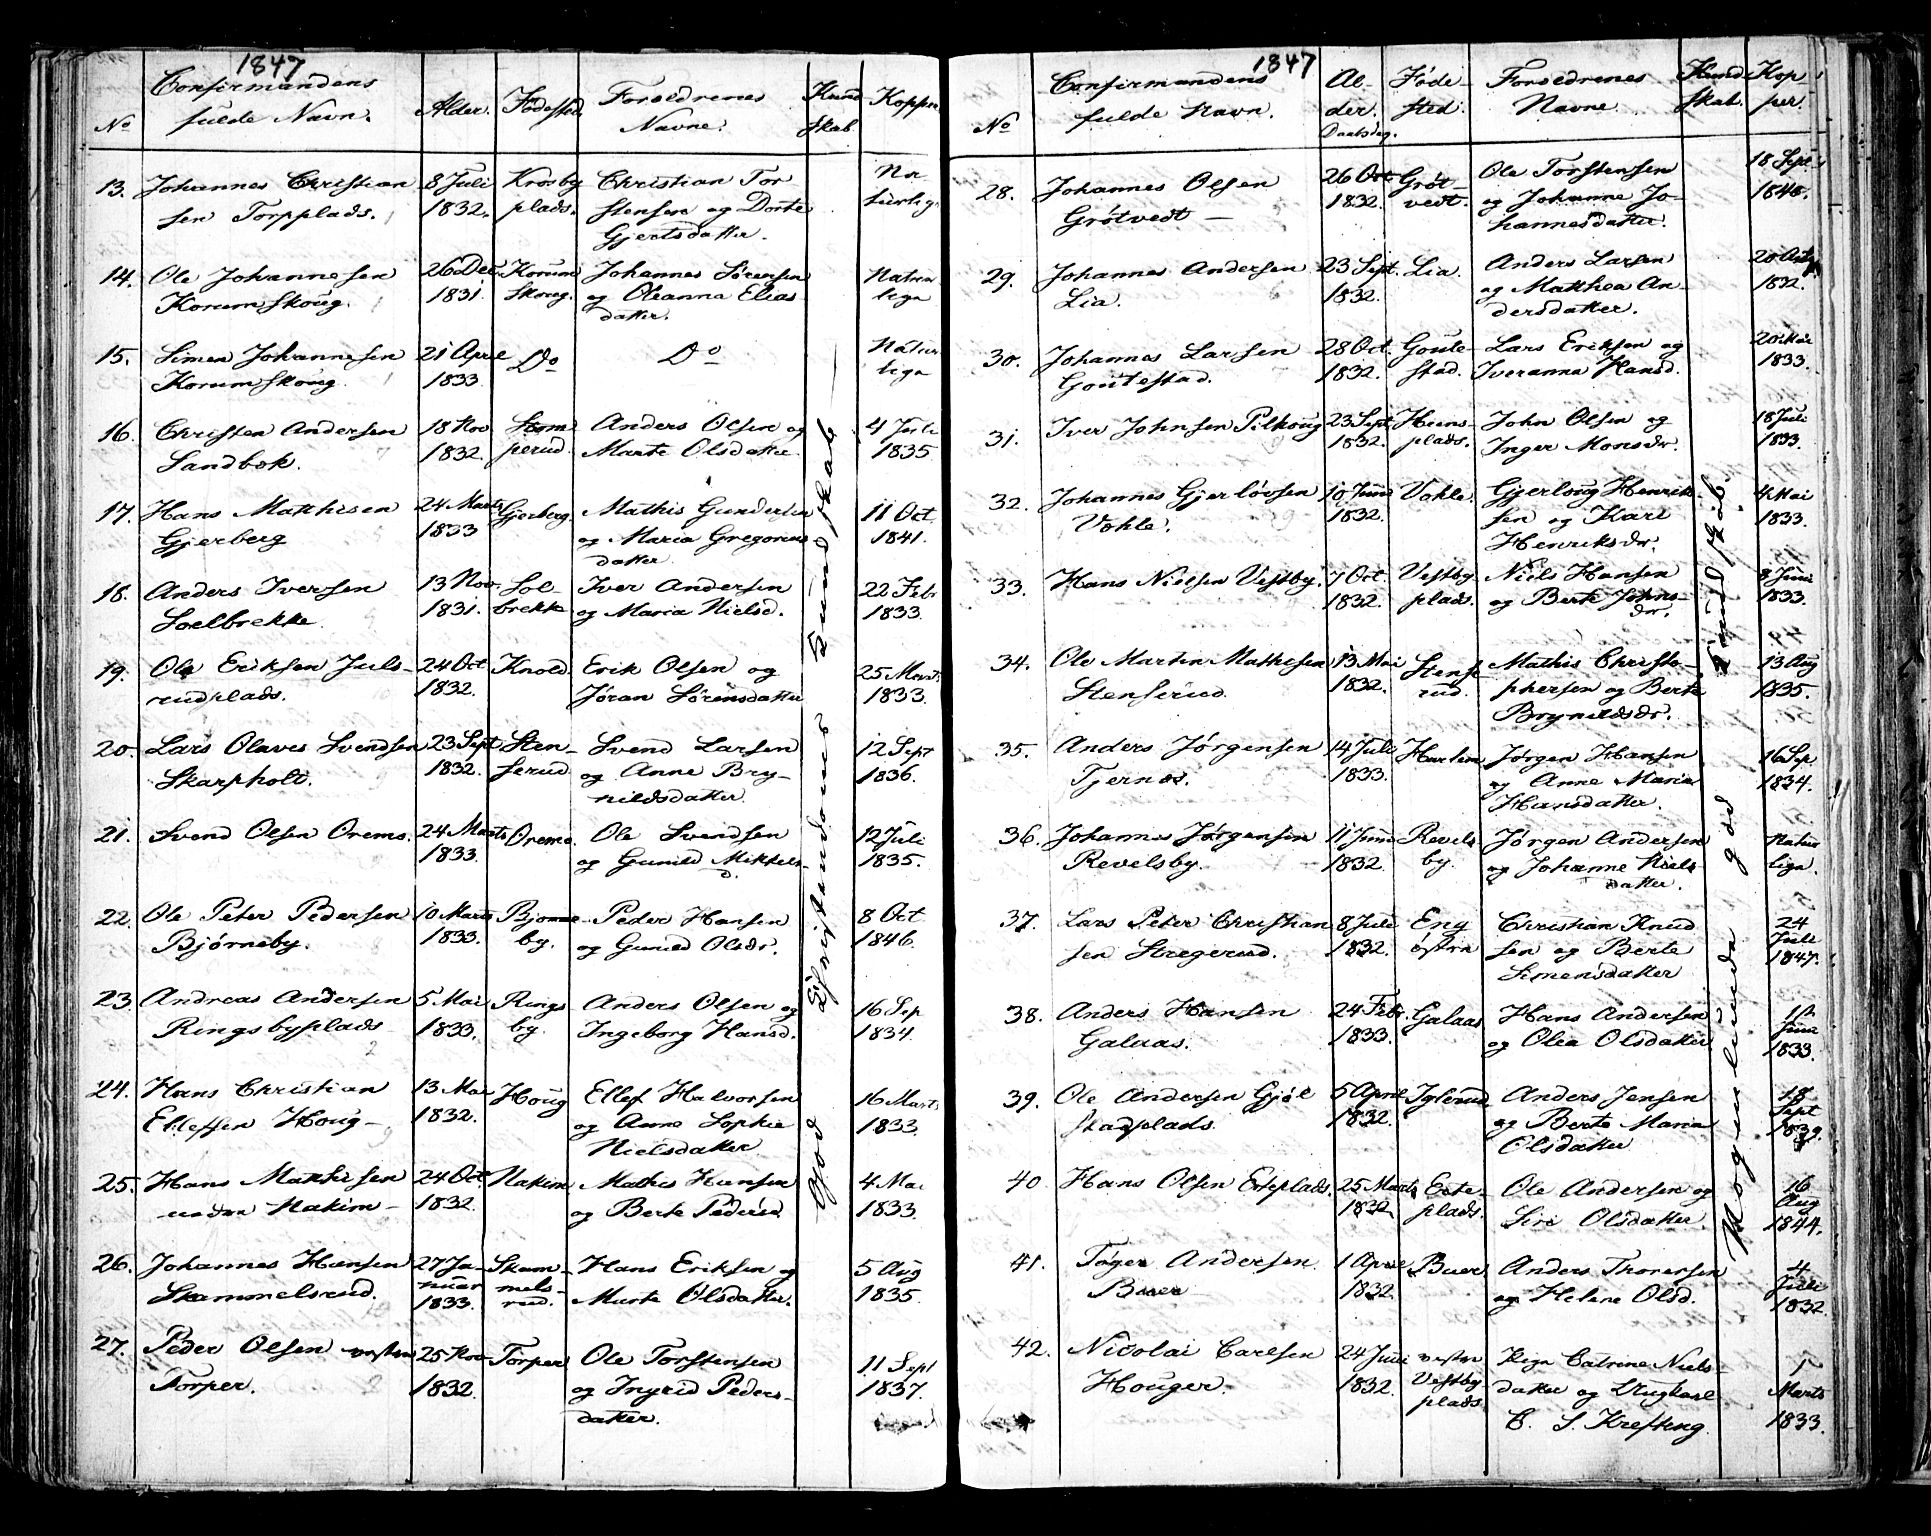 1847
No
Confirmandens
fulde Navn.
Alder.
Fødested.
Forældrenes
Navne.
Kund
skab.
Kopper
13. Johannes Christian
sen Torpplads.
8 Juli
1832.
Krosby
plads.
Christian Tor
stensen og Dorte
Gjertsdatter.
Na
turlig.
14. Ole Johannesen
Korumskoug.
26 Dec
1831.
Korum
Skoug.
Johannes Sørensen
og Oleanna Elias
datter.
Natur
liga
15. Simen Johannesen
Korumskoug.
21 April
1833.
Do
Do
Natur
liga
16. Christen Andersen
Sandbok.
18 Nov
1832.
Anders Olsen og
Marte Olsdatter
4 Juli
1835.
17. Hans Mathisen
Gjerberg
24 Marts
1833
Gjerberg.
Mathis Gundersen
og Maria Gregorius
datter.
11 Oct
1841.
18. Anders Iversen
Soelbrekke.
13 Nov.
1831.
Sol-
brekke
Iver Andersen
og Maria Nielsd.
22 Feb
1833.
19. Ole Eriksen Juls-
rudplads.
24 Oct
1832.
Knold.
Erik Olsen og
Jøran Sørensdatter
25 Marts
1833.
20. Lars Olaves Svendsen
Skarpholt.
23 Sept
1832.
Sten-
serud
Svend Larsen
og Anne Bry-
nildsdatter.
12 Sept
1836.
21. Svend Olsen Oremo.
24 Marts
1833.
Oremo.
Ole Svendsen
og Gunild Mikkels-
d.
12 Juli
1835.
22. Ole Peter Pedersen
Bjørneby.
10 Marts
1833.
Bjørne
by.
Peder Hansen
og Gunild Olsdr.
8 Oct
1846.
23 Andreas Andersen
Ringsbyplads
5 Mai
1833.
Rings
by.
Anders Olsen og
Ingeborg Hansd.
16 Sep
1834.
24. Hans Christian
Ellefsen Houg
13 Mai
1832.
Houg
Ellef Halvorsen
og Anne Sophie
Nielsdatter.
16 Marts
1833.
25. Hans Mathisen
nedre Nakim
24 Oct.
1832.
Nakim
Mathis Hansen
og Berte Pedersd.
4 Mai
1833.
26. Johannes Hansen
Skammelsrud.
27 Ja-
nuar
1833.
Skam-
mels-
rud.
Hans Eriksen og
Marte Olsdatter.
5 Aug
1835.
27. Peder Olsen vestre
Torper.
25 Nov
1832.
Torper
Ole Torstensen
og Ingrid Peders-
datter.
11 Sept
1837.
God Christendoms Kundskab
1847
No
Confirmandens
fulde Navn.
Al-
der.
Daabsdag.
Føde-
sted.
Forældrenes
Navne.
Kund
skab.
Kop
per.
28. Johannes Olsen
Grøtvedt
26 Oct
1832.
Grøt-
vedt.
Ole Torstensen
og Johanne Jo-
hannesdatter.
18 Sept
29. Johannes Andersen
Lia.
23 Sept.
1832.
Lia.
Anders Larsen
og Mathea An-
dersdatter.
1832.
30. Johannes Larsen
Goutestad.
28 Oct.
1832.
Goute-
stad.
Lars Eriksen og
Iveranna Hansd.
20 Mai
1833.
31. Iver Johnsen Pilkoug
23 Sept
1832.
Huns-
plads.
John Olsen og
Inger Monsdr.
18 Juli
1833.
32. Johannes Gjerløvsen
Vokle.
10 Juni
1832.
Vokle.
Gjerloug Henrik
sen og Kari
Henriksdr.
4 Mai
1833.
33. Hans Nielsen Vestby.
7 Oct
1832.
Vestby
plads.
Niels Hansen
og Berte Johns-
dr.
8 Juni
1833.
34. Ole Martin Mathesen
Stenserud.
13 Mai
1832.
Stense
rud.
Mathis Christo-
phersen og Berte
Brynildsdr.
13 Aug
1835.
35. Anders Jørgensen
Tjernæs.
14 Juli
1833.
Jørgen Hansen
og Anne Maria
Hansdatter.
16 Sep
1834.
36. Johannes Jørgensen
Revelsby.
11 Juni
1832.
Revels
by.
Jørgen Andersen
og Johanne Niels
datter.
Natur
liga.
37. Lars Peter Christian
sen Stregerud.
8 Juli
1832.
Eng
østre
Christian Knud
sen og Berte
Simensdatter
24
Juli
1847.
38. Anders Hansen
Galaas.
24 Febr.
1833.
Galaas
Hans Andersen
og Olea Olsdatter
1ste
Juni
1833.
39. Ole Andersen Gjøl
stadplads.
5 April
1832.
Iglerud
Anders Jensen
og Berte Maria
Olsdatter
18
Sept
1839.
40. Hans Olsen Erteplads.
25 Marts
1832.
Erte-
plads.
Ole Andersen og
Siri Olsdatter.
16
Aug
1844.
41. Tøger Andersen
Buer
1 April
1832.
Buer.
Anders Thoresen
og Helene Olsd.
4
Juli
1832
42. Nicolai Carlsen
Houger.
24 Juni
1832.
vestre
Vestby
plads.
Pige Catrine Niels-
datter og Ungkarl
C. S. Krefting
5
Marts
1833.
Nogenlunde god Kundskab